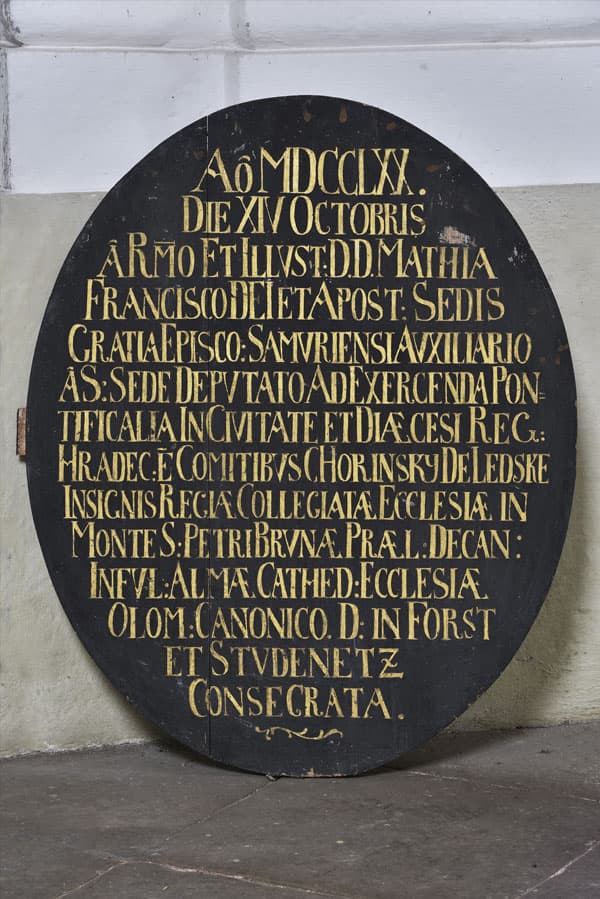 Aô MDCCLXX.
DIE XIV OCTOBRIS
Â RM̃O ET ILLVST: D.D. MATHIA
FRANCISCO DEI ET APOST: SEDIS
GRATIA EPISCO: SAMVRIENSI AVXILIARIO
ÂS: SEDE DEPVTATO AD EXERCENDA PON=
TIFICALIA IN CIVITATE ET DIÆCESI REG:
HRADEC: Ē COMITIBVS CHORINSKY DE LEDSKE
INSIGNIS REGIÆ COLLEGIATÆ ECCLESIÆ IN
MONTE S: PETRI BRVNÆ PRÆL: DECAN:
INFVL: ALMÆ CATHED: ECCLESIÆ
OLOM: CANONICO. D: IN FORST
ET STVDENETZ
CONSECRATA.